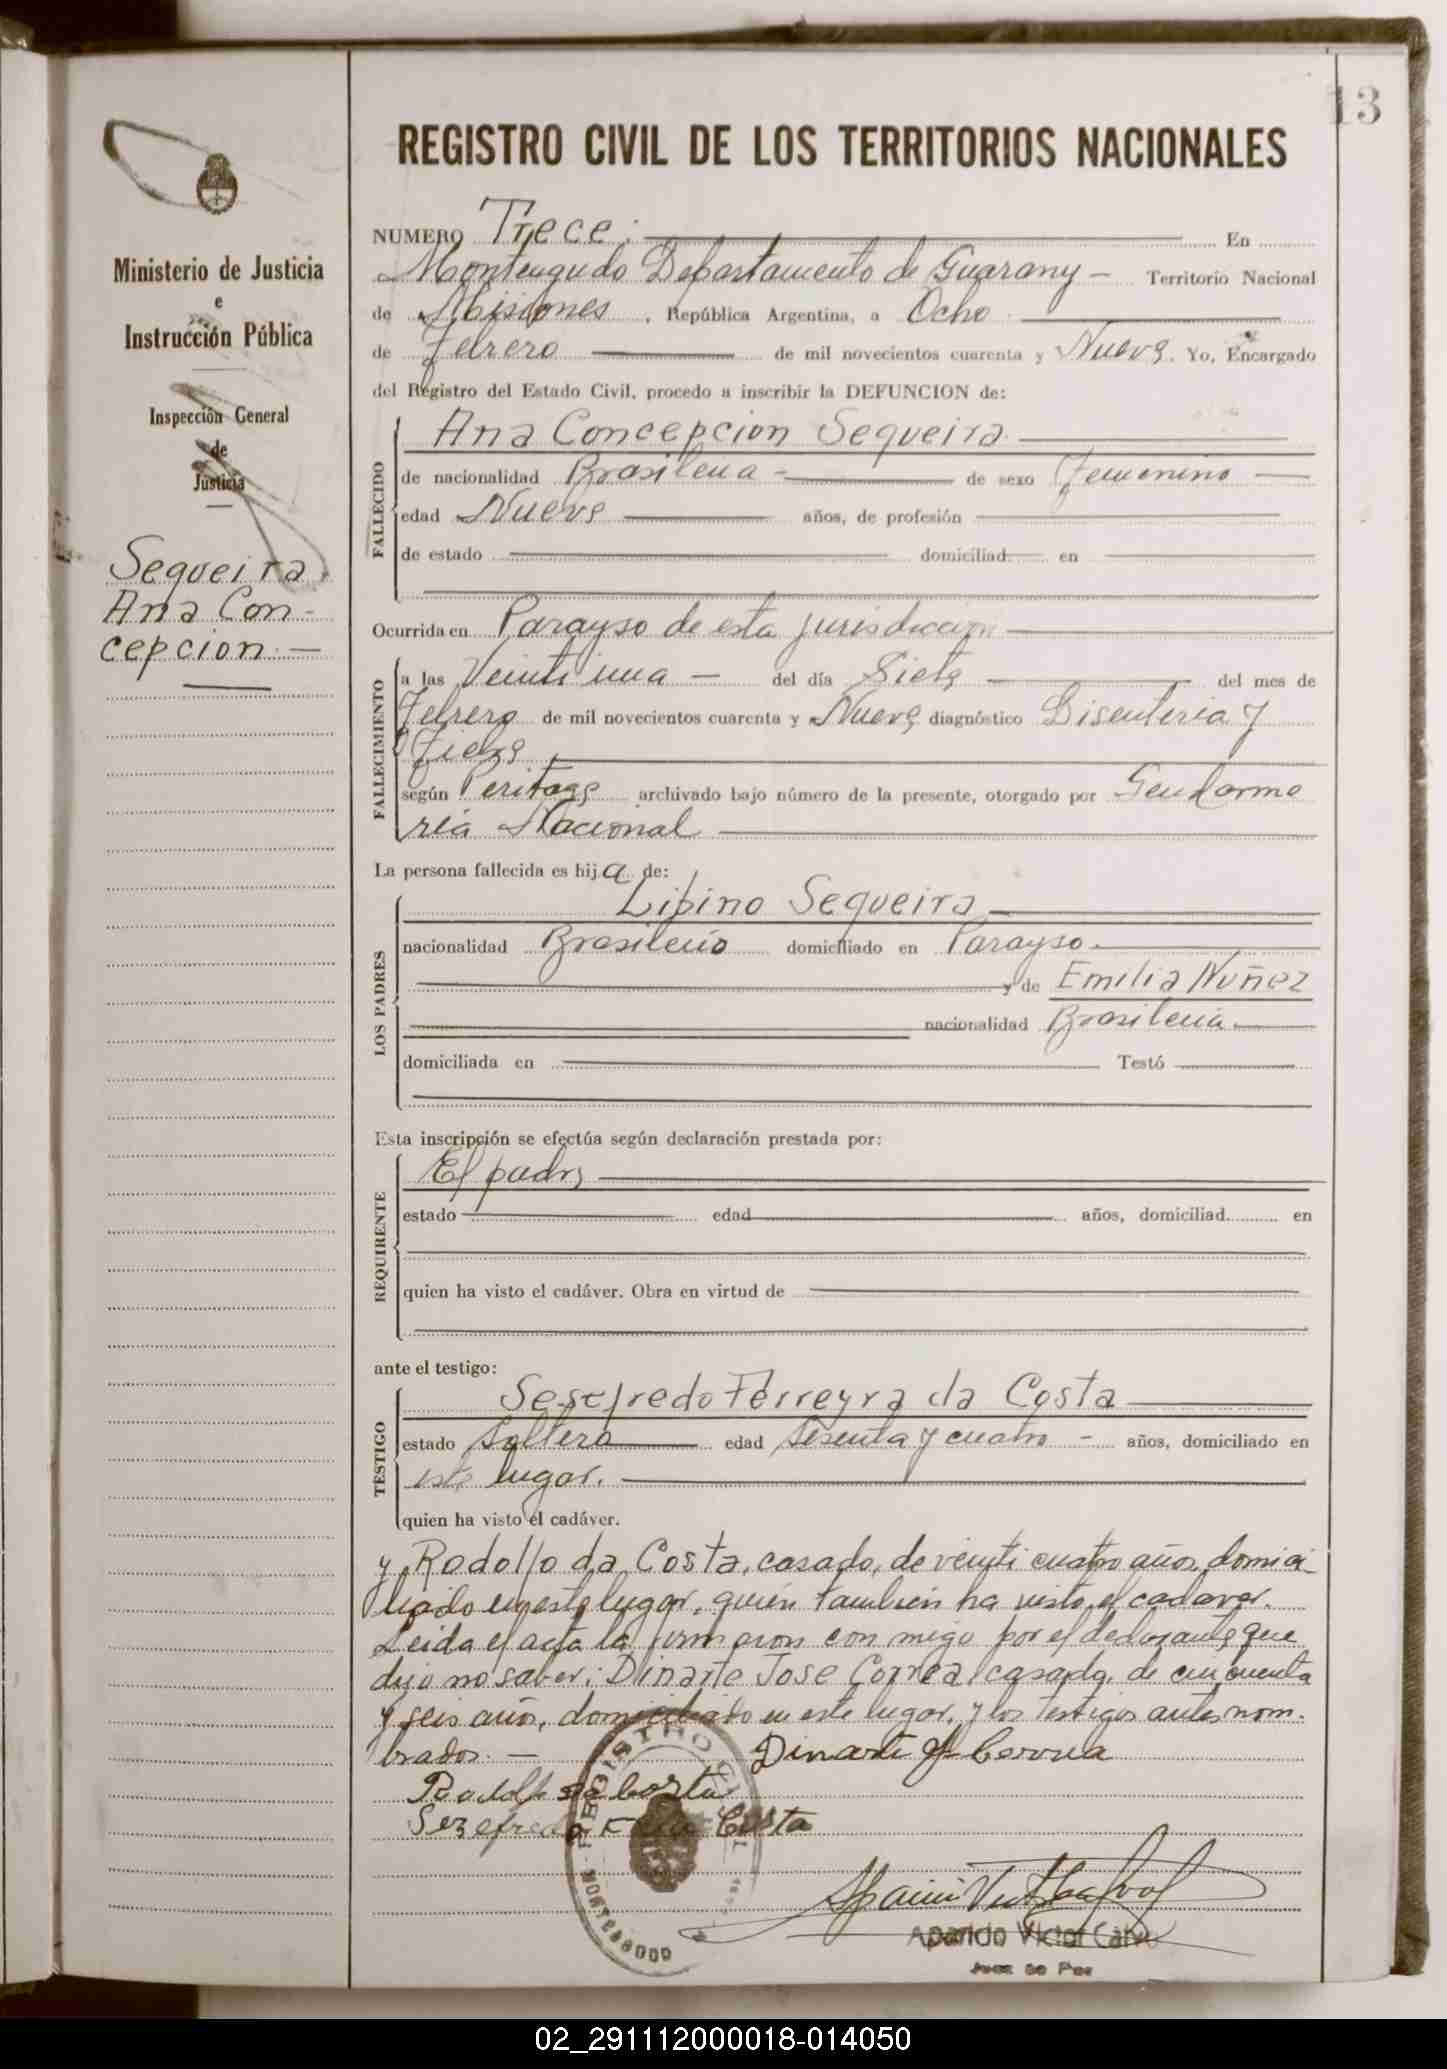 13
REGISTRO CIVIL DE LOS TERRITORIOS NACIONALES
Ministerio de Justicia
e
Instrucción Pública
Inspección General
de
Justicia
Sequeira
Ana Con-
cepcion. —
NUMERO Trece. En
Monteagudo Departamento de Guarany - Territorio Nacional
de Misiones, República Argentina, a Ocho
de Febrero de mil novecientos cuarenta y Nueve. Yo, Encargado
del Registro del Estado Civil, procedo a inscribir la DEFUNCION de:
FALLECIDO
Ana Concepcion Sequeira
de nacionalidad Brasileña - de sexo Femenino
edad Nueve años, de profesión
de estado domiciliad en
Ocurrida en Parayso de esta jurisdiccion
FALLECIMIENTO
a las Veinti una - del día Siete del mes de
Febrero de mil novecientos cuarenta y Nueve diagnóstico Disenteria y
Fiebre
según Peritage archivado bajo número de la presente, otorgado por Gendarme
ria Nacional
La persona fallecida es hija de:
LOS PADRES
Libino Sequeira
nacionalidad Brasileño domiciliado en Parayso.
y de Emilia Nuñez
nacionalidad Brasileña.
domiciliada en Testó
Esta inscripción se efectúa según declaración prestada por:
REQUIRENTE
El padre
estado edad años, domiciliad en
quien ha visto el cadáver. Obra en virtud de
ante el testigo:
TESTIGO
Sesefredo Ferreyra da Costa
estado Soltero edad Sesenta y cuatro - años, domiciliado en
este lugar.
quien ha visto el cadáver.
y Rodolfo da Costa, casado, de veinti cuatro años, domici-
liado en este lugar, quien tambien ha visto el cadaver.
Leida el acta la firmaron con migo por el declarante que
dijo no saber: Dinarte Jose Correa, casado, de cincuenta
y seis años, domiciliado en este lugar, y los testigos antes nom-
brados. — Dinarte J. Correa
Rodolfo da Costa
Sezefredo F. da Costa
REGISTRO CIVIL
MONTEAGUDO
Aparicio Victor Calvo
Juez de Paz
02_291112000018-014050